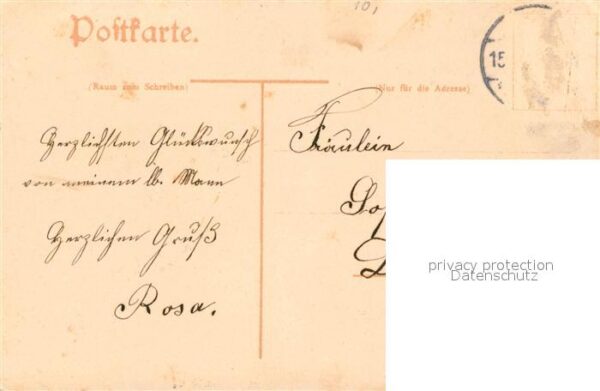 10,
Postkarte.
15
(Raum zum Schreiben)
(Nur für die Adresse)
Herzlichsten Glückwunsch
von meinem lb. Mann
Herzlichen Gruß
Rosa.
Fräulein
privacy protection
Datenschutz